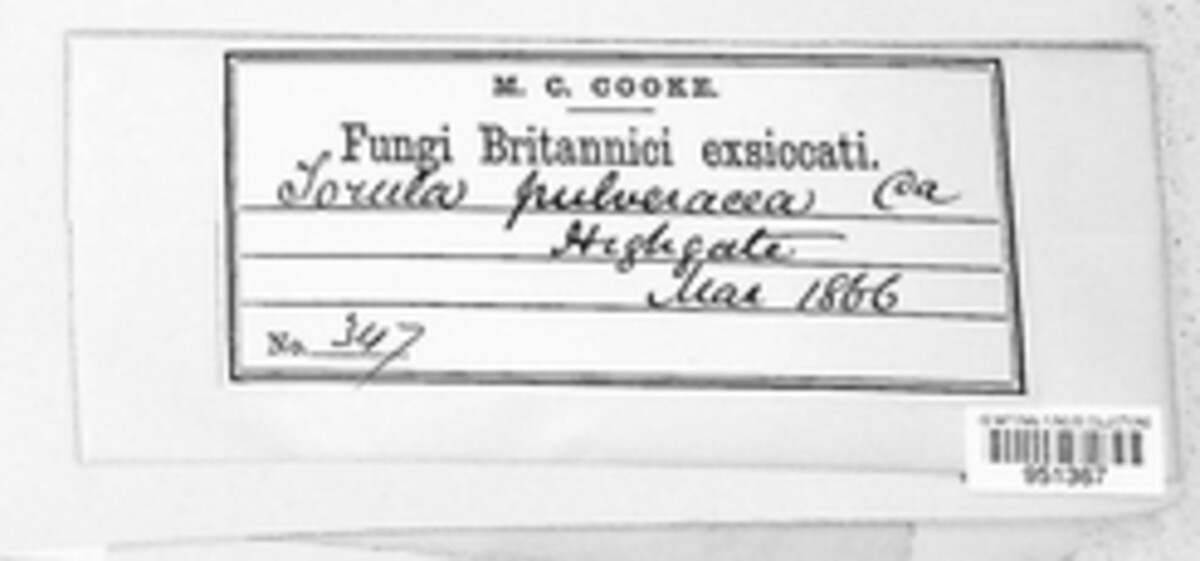 M. C. COOKE.
Fungi Britannici exsiccati.
Torula pulveracea Cda
Highgate
Mar 1866
No. 347
951367